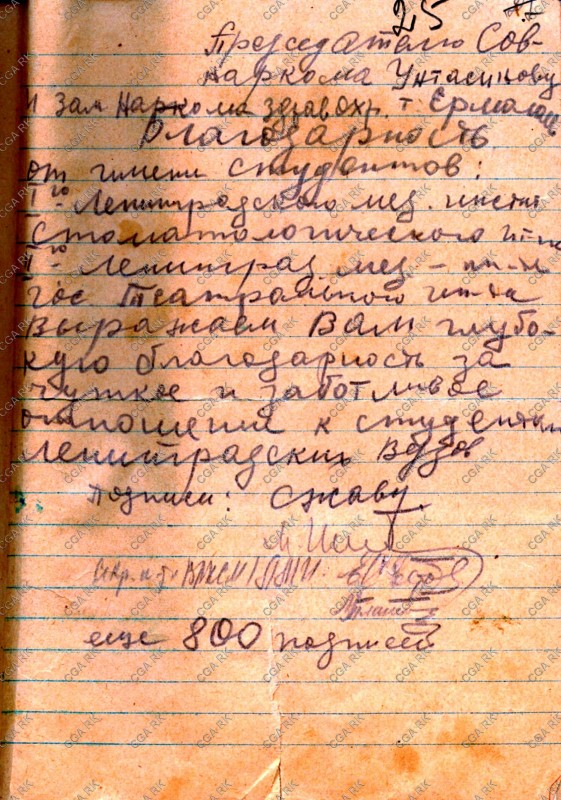 25
Председателю Сов-
наркома Унтасинову
и Зам Наркома здравохр. т. Ермалов
Благодарность
от имени студентов:
I го Ленинградского мед. инстит
Стоматологического ин-та
го Ленинград мед - ин-та
гос Театрального ин-та
Выражаем Вам глубо-
кую благодарность за
чуткое и заботливое
отношение к студентам
Ленинградских Вузов
подписи:
ВЛКСМ
еще 800 подписей
CGA RK